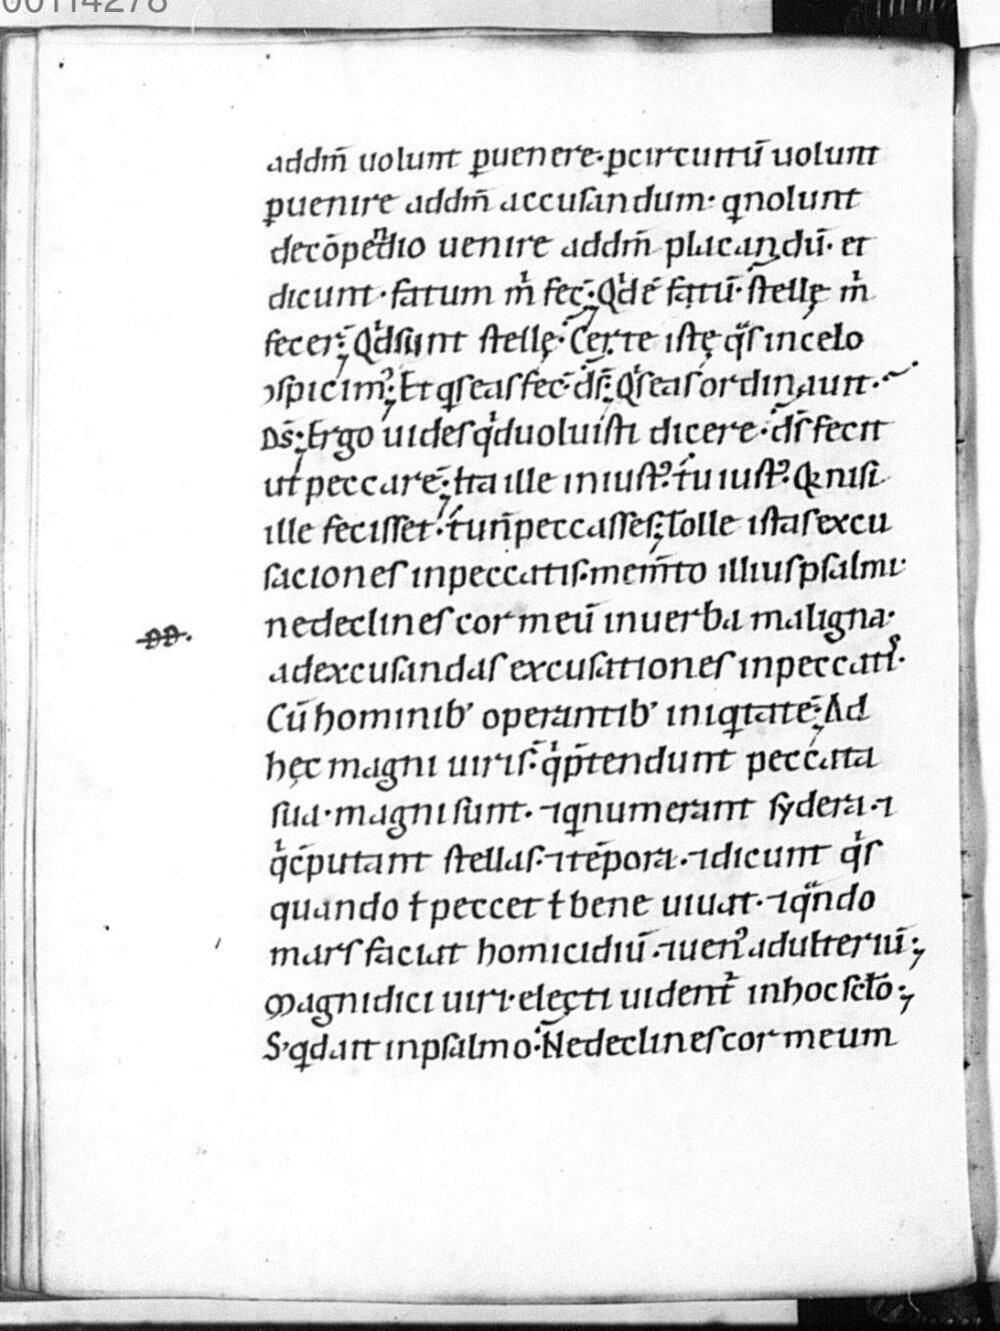 00114278
addm̄ uolunt ꝑuenere · ꝑcircuitū uolunt
ꝑuenire addm̄ accusandum · qnolunt
decōpendio uenire addm̄ placandū · et
dicunt · fatum m̍ fec̄ · Qͥdē fatū · stellę m̍
fecer̄ Qͥdsunt stellę · Certe istę qͣs incelo
ɔspicimꝰ Et qseas fec̄ · ds̄ Qͥseas ordinauit ·
Ds̄ Ergo uides qͥduoluisti dicere · ds̄ fecit
ut peccarē Ita ille iniustꝰ tu iustꝰ · Q nisi
ille fecisset · tun̄peccasses Tolle istas excu
sationes inpeccatis · mem̄to illius psalmi
nedeclines cor meū inuerba maligna ·
adexcusandas excusationes inpeccatis ·
Cū hominibꝰ operantibꝰ iniqtatē Ad
hęc magni uiri s̄ · qͥp̄tendunt peccata
sua · magni sunt · ⁊qnumerant sydera · ⁊
qͥc̄putant stellas · ⁊tēpora · ⁊dicunt qͥs
quando ł peccet ł bene uiuat · ⁊qͣndo
mars faciat homicidiū · ⁊uenꝰ adulteriū
ꝺꝺ.
Magnidici uiri · electi uident̄ inhoc scło
Sꝰ qdait inpsalmo · Nedeclines cor meum